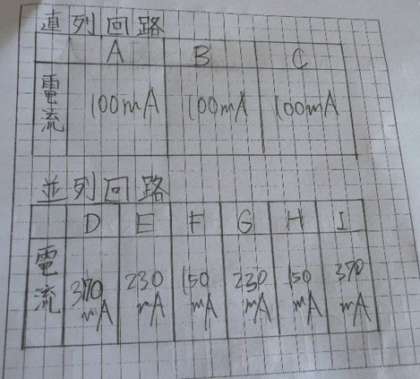 直列回路
A B C
電流 100mA 100mA 100mA
並列回路
D E F G H I
電流 370mA 230mA 150mA 230mA 150mA 370mA